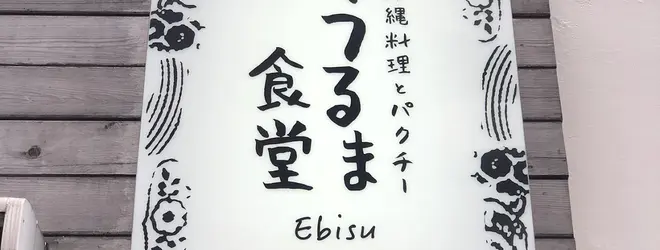 縄料理とパクチー
つるま
食堂
Ebisu